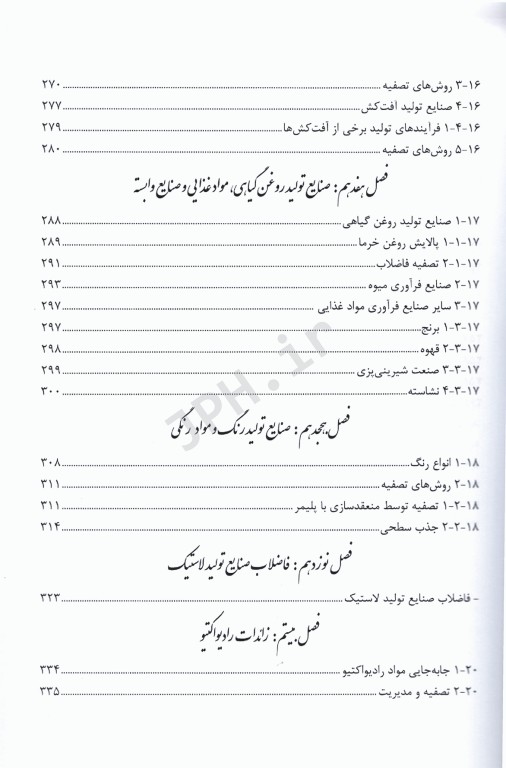 ۳-۱۶ روش‌های تصفیه ........ ۲۷۰
۴-۱۶ صنایع تولید آفت‌کش ........ ۲۷۷
۱-۴-۱۶ فرآیندهای تولید برخی از آفت‌کش‌ها ........ ۲۷۹
۵-۱۶ روش‌های تصفیه ........ ۲۸۰
فصل هفدهم: صنایع تولید روغن گیاهی، مواد غذایی و صنایع وابسته
۱-۱۷ صنایع تولید روغن گیاهی ........ ۲۸۸
۱-۱-۱۷ پالایش روغن خرما ........ ۲۸۹
۲-۱-۱۷ تصفیه فاضلاب ........ ۲۹۱
۲-۱۷ صنایع فرآوری میوه ........ ۲۹۳
۳-۱۷ سایر صنایع فرآوری مواد غذایی ........ ۲۹۷
۱-۳-۱۷ برنج ........ ۲۹۷
۲-۳-۱۷ قهوه ........ ۲۹۸
۳-۳-۱۷ صنعت شیرینی‌پزی ........ ۲۹۹
۴-۳-۱۷ نشاسته ........ ۳۰۰
JPH.ir
فصل هجدهم: صنایع تولید رنگ و مواد رنگی
۱-۱۸ انواع رنگ ........ ۳۰۸
۲-۱۸ روش‌های تصفیه ........ ۳۱۱
۱-۲-۱۸ تصفیه توسط منعقدسازی با پلیمر ........ ۳۱۱
۲-۲-۱۸ جذب سطحی ........ ۳۱۴
فصل نوزدهم: فاضلاب صنایع تولید لاستیک
- فاضلاب صنایع تولید لاستیک ........ ۳۲۳
فصل بیستم: زائدات رادیواکتیو
۱-۲۰ جابه‌جایی مواد رادیواکتیو ........ ۳۳۴
۲-۲۰ تصفیه و مدیریت ........ ۳۳۵